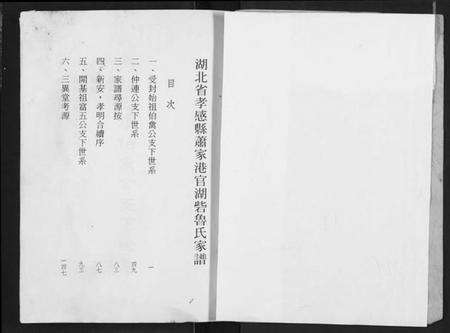 湖北省孝感縣蕭家港官湖砦魯氏家譜
目次
一、受封始祖伯禽公支下世系 一
二、仲連公支下世系 四九
三、家譜尋源按 八三
四、新安・孝明合續序 八七
五、開基祖富五公支下世系 九三
六、三異堂考源 一四七